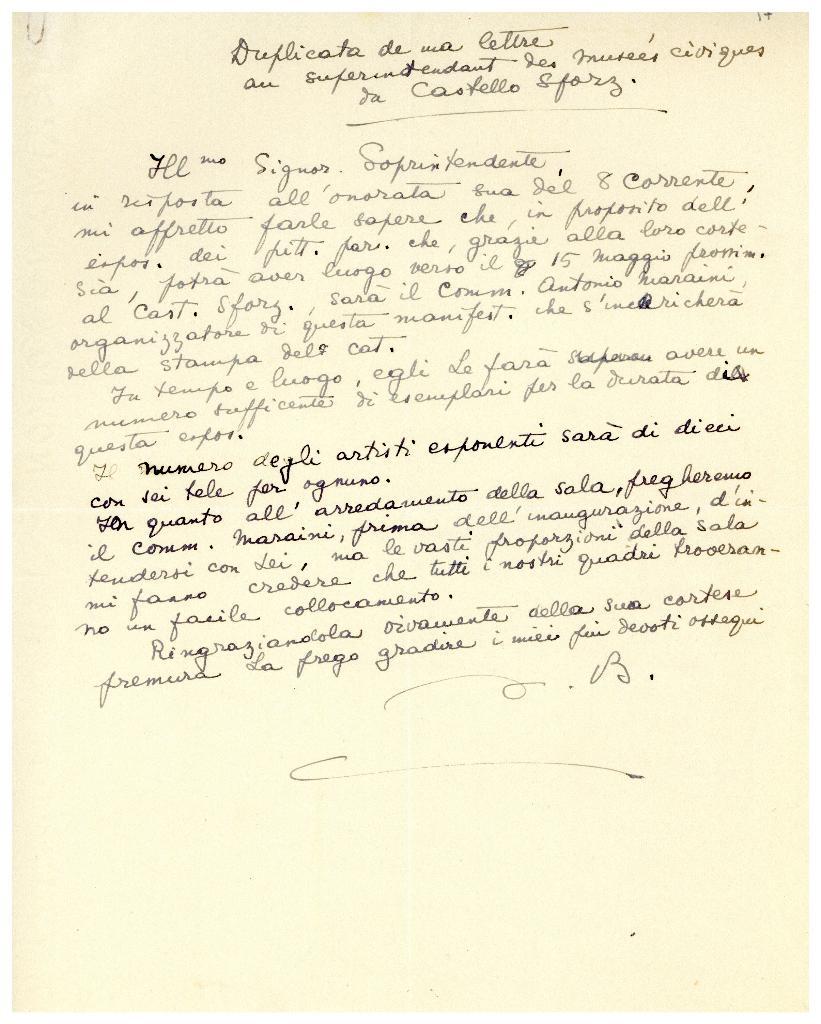 17
Duplicata de ma lettre
au superintendant des museés civiques
da Castello Sforz.
Ill mo Signor. Soprintendente,
in risposta all'onorata sua del 8 Corrente,
mi affretto farle sapere che, in proposito dell'
espos. dei pitt. par. che, grazie alla loro corte-
sià, potrà aver luogo verso il 15 Maggio prossim.
al Cast. Sforz., sarà il Comm. Antonio Maraini,
organizzatore di questa manifest. che s'incaricherà
della stampa del cat.
In tempo e luogo, egli Le farà avere un
numero sufficente di esemplari per la durata di
questa espos.
Il numero degli artisti esponenti sarà di dieci
con sei tele per ognuno.
In quanto all'arredamento della sala, pregheremo
il Comm. Maraini, prima dell'inaugurazione, d'in-
tendersi con Lei, ma le vasti proporzioni della sala
mi fanno credere che tutti i nostri quadri troveran-
no un facile collocamento.
Ringraziandola vivamente della sua cortese
premura La prego gradire i miei più devoti ossequi
. B.